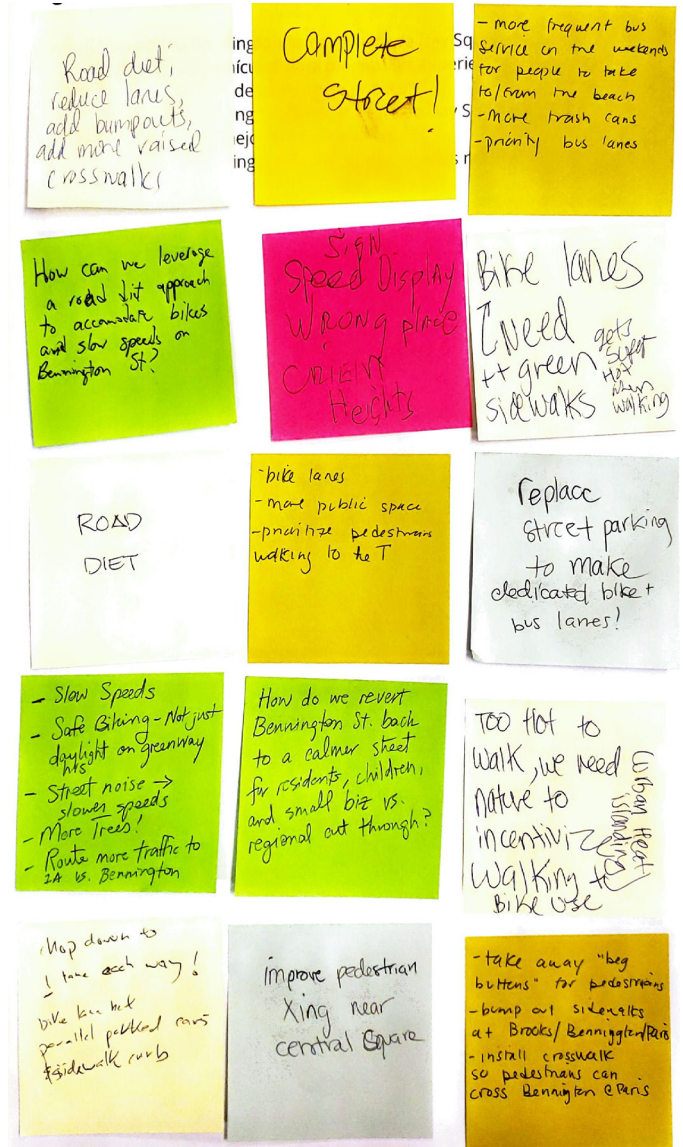 Road diet,
reduce lanes,
add bumpouts,
add more raised
crosswalks
Complete
street!
- more frequent bus
service on the weekends
for people to take
to/from the beach
- More trash cans
- priority bus lanes
How can we leverage
a road diet approach
to accomodate bikes
and slow speeds on
Bennington St?
Sign
Speed Display
WRONG place
ORIENT
Heights
Bike lanes
Need
++ green
sidewalks
gets
super
Hot
when
walking
ROAD
DIET
- bike lanes
- more public space
- prioritize pedestrians
walking to the T
replace
street parking
to make
dedicated bike +
bus lanes!
- Slow Speeds
- Safe Biking - Not just
daylight on greenway
hrs
- Street noise →
slower speeds
- More Trees!
- Route more traffic to
1A vs. Bennington
How do we revert
Bennington St. back
to a calmer street
for residents, children,
and small biz vs.
regional cut through?
TOO HOT to
walk, we need
nature to
incentivize
walking +
Bike use
(urban heat
islanding)
down to
1 lane each way!
bike lane
parallel parked cars
sidewalk curb
improve pedestrian
Xing near
central Square
- take away "beg
buttons" for pedestrians
- bump out sidewalks
at Brooks/Bennington/Paris
- install crosswalk
so pedestrians can
cross Bennington @ Paris